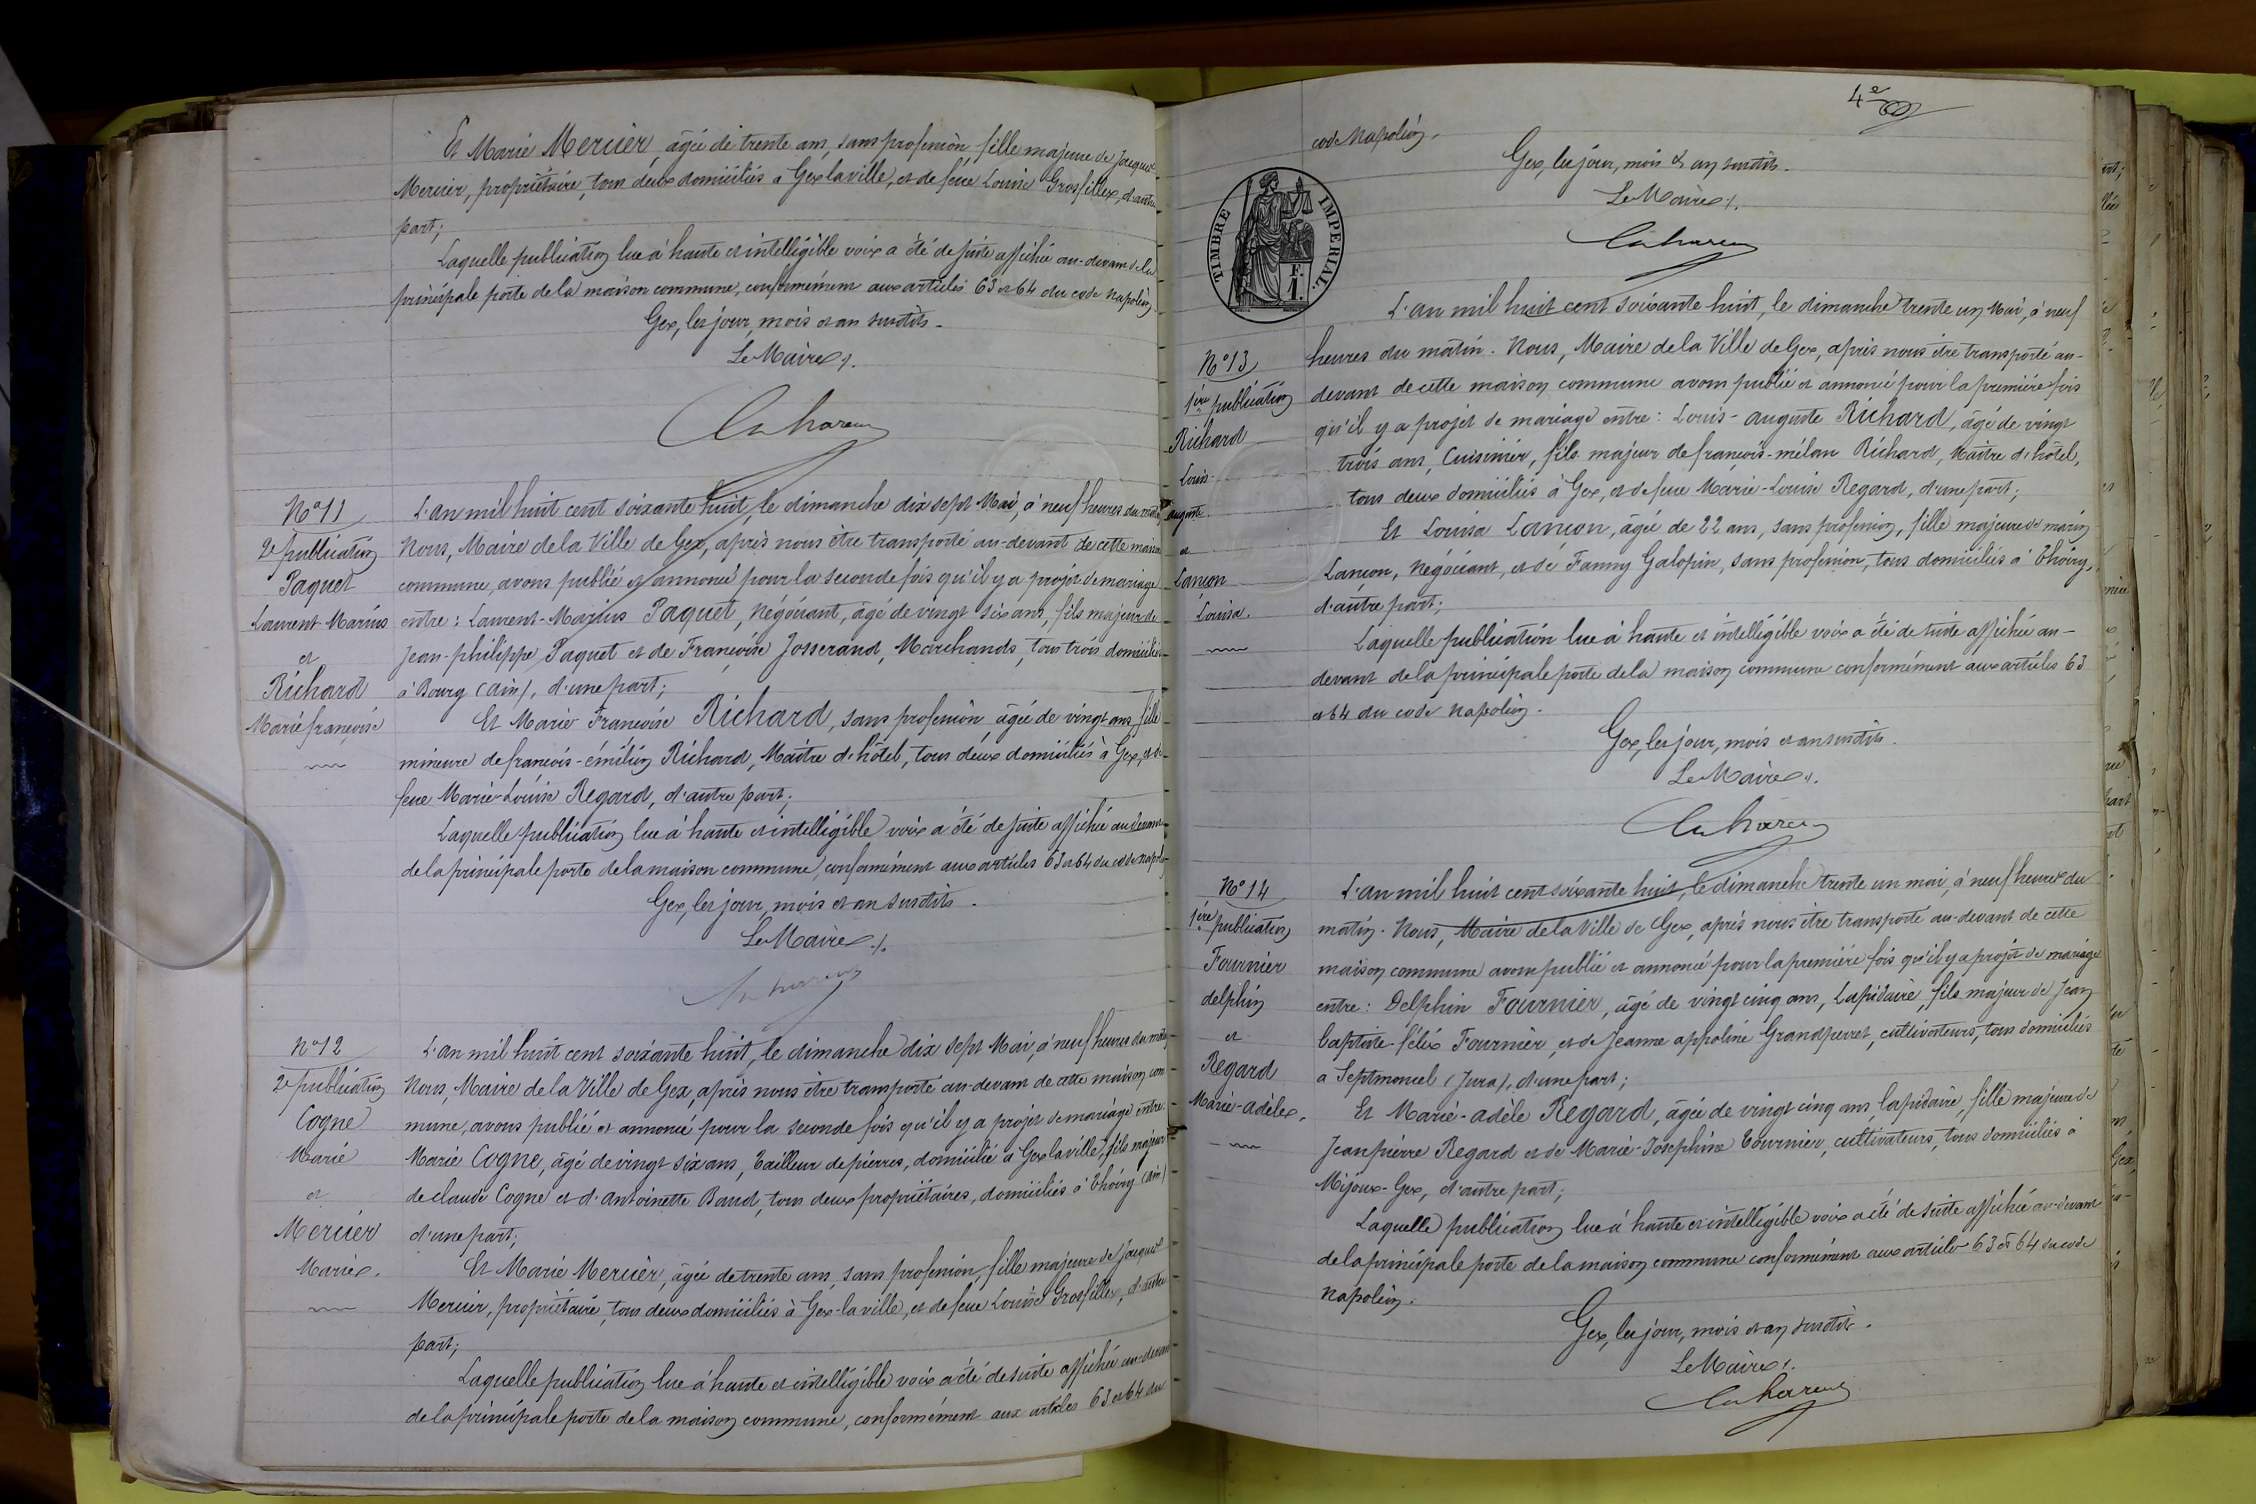 Et Marie Mercier, âgée de trente ans, sans profession, fille majeure de Jacques
Mercier, propriétaire, tous deux domiciliés à Gex la ville, et de feue Louise Grosfillex, d'autre
part;
Laquelle publication lue à haute et intelligible voix a été de suite affichée au-devant de la
principale porte de la maison commune, conformément aux articles 63 et 64 du code Napoléon.
Gex, les jour, mois et an susdits.
Le Maire
N° 11
2e publication
Paquet
Laurent Marius
et
Richard
Marie françoise
L'an mil huit cent soixante huit, le dimanche dix sept Mai, à neuf heures du matin
Nous, Maire de la Ville de Gex, après nous être transporté au-devant de cette maison
commune, avons publié et annoncé pour la seconde fois qu'il y a projet de mariage
entre: Laurent-Marius Paquet, Négociant, âgé de vingt six ans, fils majeur de
Jean-philippe Paquet et de Françoise Josserand, Marchands, tous trois domiciliés
à Bourg (Ain), d'une part;
Et Marie Françoise Richard, sans profession âgée de vingt ans, fille
mineure de françois-émilien Richard, Maître d'hôtel, tous deux domiciliés à Gex, et de
feue Marie-Louise Regard, d'autre part;
Laquelle publication lue à haute et intelligible voix a été de suite affichée au devant
de la principale porte de la maison commune, conformément aux articles 63 et 64 du code Napoléon
Gex, les jour, mois et an susdits.
Le Maire
N° 12
2e publication
Cogne
Marie
et
Mercier
Marie.
L'an mil huit cent soixante huit, le dimanche dix sept Mai, à neuf heures du matin
Nous, Maire de la Ville de Gex, après nous être transporté au-devant de cette maison com
mune, avons publié et annoncé pour la seconde fois qu'il y a projet de mariage entre:
Marie Cogne, âgé de vingt six ans, Tailleur de pierres, domicilié à Gex la ville, fils majeur
de claude Cogne et d'antoinette Baud, tous deux propriétaires, domiciliés à Thoiry (Ain)
d'une part;
Et Marie Mercier, âgée de trente ans, sans profession, fille majeure de Jacques
Mercier, propriétaire, tous deux domiciliés à Gex-la ville, et de feue Louise Grosfillex, d'autre
part;
Laquelle publication lue à haute et intelligible voix a été de suite affichée au-devant
de la principale porte de la maison commune, conformément aux articles 63 et 64 du
4e
code Napoléon.
Gex, les jour, mois & an susdits.
Le Maire
TIMBRE IMPERIAL.
F.
1.
N° 13
1ère publication
Richard
Louis-
auguste
et
Lançon
Louisa.
L'an mil huit cent soixante huit, le dimanche trente un Mai, à neuf
heures du matin. Nous, Maire de la Ville de Gex, après nous être transporté au-
devant de cette maison commune avons publié et annoncé pour la première fois
qu'il y a projet de mariage entre: Louis-auguste Richard, âgé de vingt
trois ans, Cuisinier, fils majeur de françois-mélan Richard, Maître d'hôtel,
tous deux domiciliés à Gex, et de feue Marie-Louise Regard, d'une part;
Et Louisa Lançon, âgée de 22 ans, sans profession, fille majeure de marin
Lançon, Négociant, et de Fanny Galopin, sans profession, tous domiciliés à Thoiry,
d'autre part;
Laquelle publication lue à haute et intelligible voix a été de suite affichée au-
devant de la principale porte de la maison commune conformément aux articles 63
et 64 du code Napoléon.
Gex, les jour, mois et an susdits.
Le Maire
N° 14
1ère publication
Fournier
delphin
et
Regard
Marie-adèle.
L'an mil huit cent soixante huit, le dimanche trente un mai, à neuf heures du
matin. Nous, Maire de la Ville de Gex, après nous être transporté au-devant de cette
maison commune avons publié et annoncé pour la première fois qu'il y a projet de mariage
entre: Delphin Fournier, âgé de vingt cinq ans, Lapidaire, fils majeur de Jean
baptiste-félix Fournier, et de Jeanne appoline Grandperret, cultivateurs, tous domiciliés
à Septmoncel (Jura), d'une part;
Et Marie-adèle Regard, âgée de vingt cinq ans lapidaire, fille majeure de
Jean pierre Regard et de Marie-Josephine Tournier, cultivateurs, tous domiciliés à
Mijoux-Gex, d'autre part;
Laquelle publication lue à haute et intelligible voix a été de suite affichée au-devant
de la principale porte de la maison commune conformément aux articles 63 et 64 du code
Napoléon.
Gex, les jour, mois et an susdits.
Le Maire